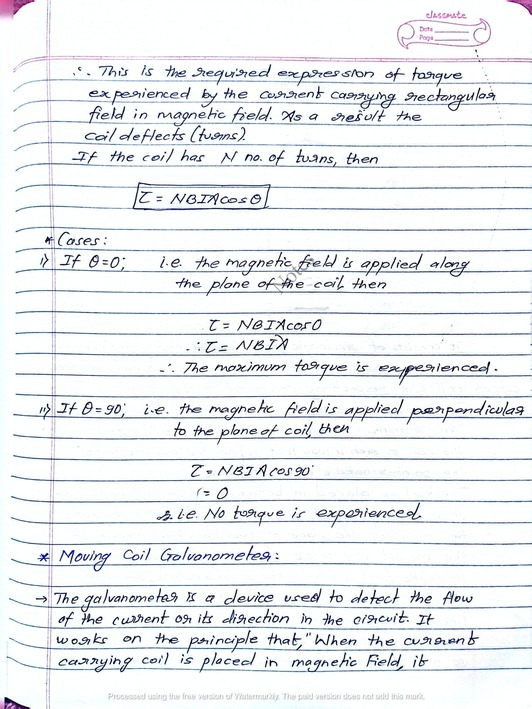 classmate
Date
Page
∴ This is the required expression of torque
experienced by the current carrying rectangular
field in magnetic field. As a result the
coil deflects (turns).
If the coil has N no. of turns, then
τ = NBIAcosθ
* Cases:
i) If θ=0; i.e. the magnetic field is applied along
the plane of the coil, then
τ = NBIAcos0
∴ τ = NBIA
∴ The maximum torque is experienced.
ii) If θ=90; i.e. the magnetic field is applied perpendicular
to the plane of coil, then
τ = NBIAcos90°
= 0
i.e. No torque is experienced.
* Moving Coil Galvonometer:
→ The galvanometer is a device used to detect the flow
of the current or its direction in the circuit. It
works on the principle that, "When the current
carrying coil is placed in magnetic Field, it
Notes
Processed using the free version of Watermarkly. The paid version does not add this mark.